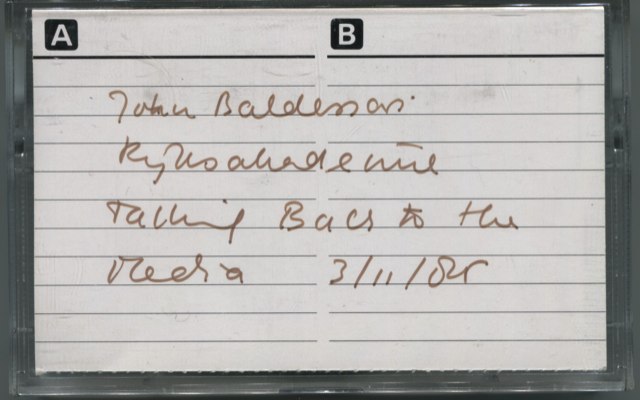 A B
John Baldessari
Rijksakademie
Talking Back to the
Media 3/11/85